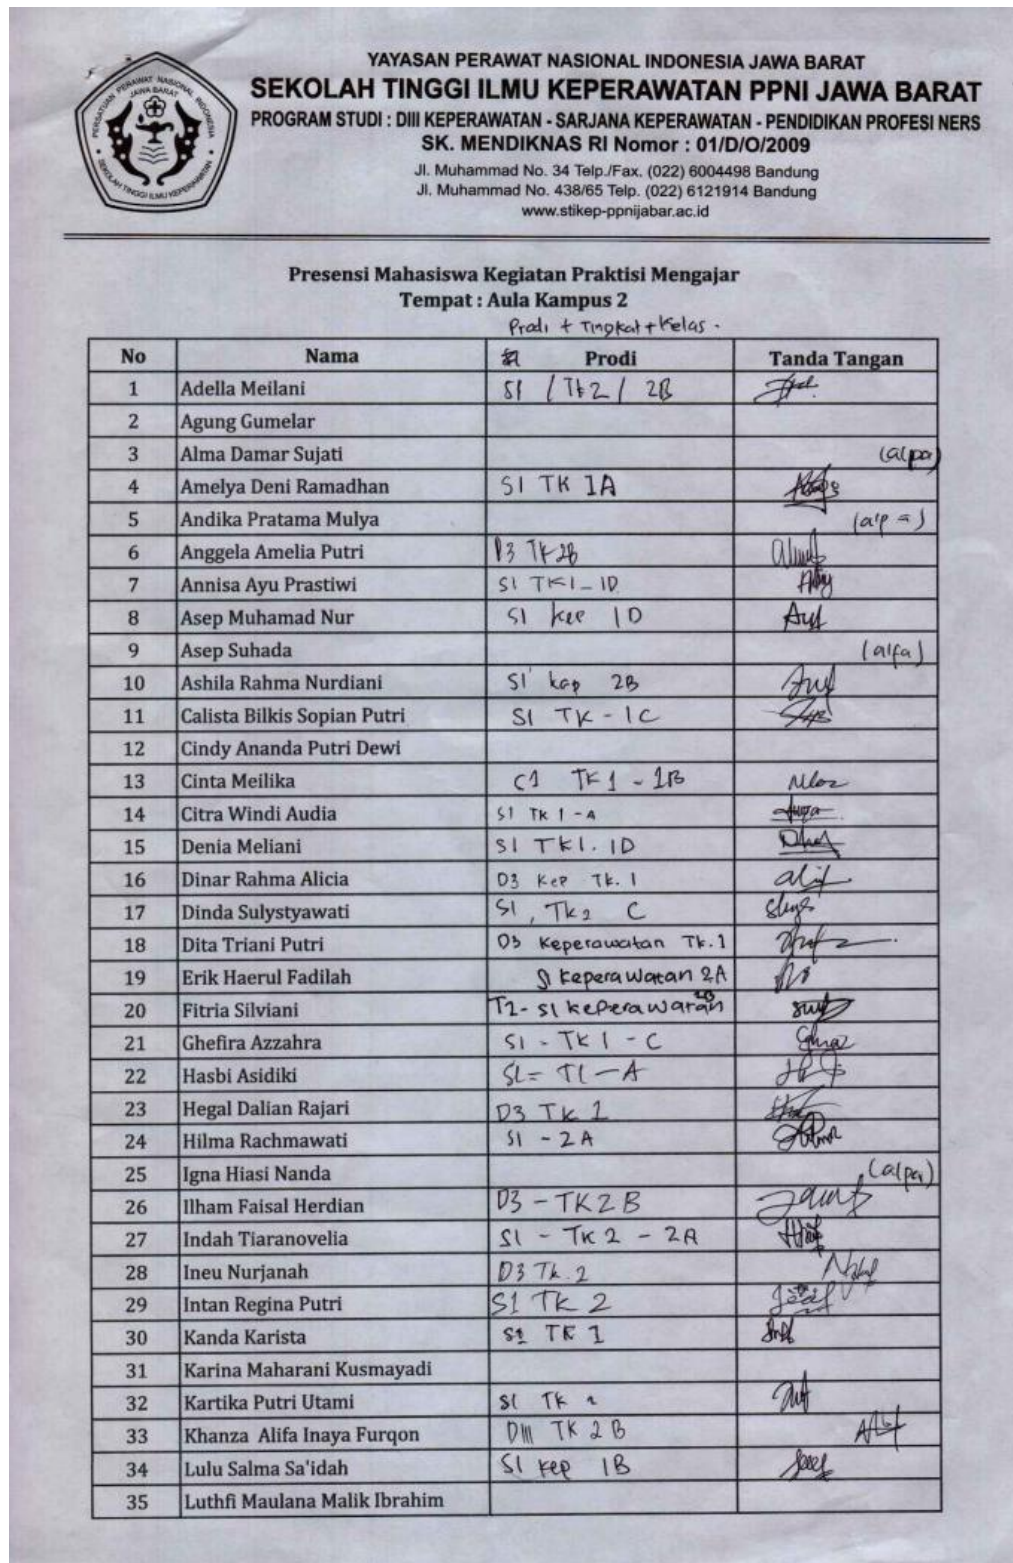 PERSATUAN PERAWAT NASIONAL INDONESIA
JAWA BARAT
SEKOLAH TINGGI ILMU KEPERAWATAN
YAYASAN PERAWAT NASIONAL INDONESIA JAWA BARAT
SEKOLAH TINGGI ILMU KEPERAWATAN PPNI JAWA BARAT
PROGRAM STUDI : DIII KEPERAWATAN - SARJANA KEPERAWATAN - PENDIDIKAN PROFESI NERS
SK. MENDIKNAS RI Nomor : 01/D/O/2009
Jl. Muhammad No. 34 Telp./Fax. (022) 6004498 Bandung
Jl. Muhammad No. 438/65 Telp. (022) 6121914 Bandung
www.stikep-ppnijabar.ac.id
Presensi Mahasiswa Kegiatan Praktisi Mengajar
Tempat : Aula Kampus 2
Prodi + Tingkat + Kelas .
No Nama Prodi Tanda Tangan
1 Adella Meilani S1 / Tk2 / 2B
2 Agung Gumelar
3 Alma Damar Sujati (alpa)
4 Amelya Deni Ramadhan S1 TK 1A
5 Andika Pratama Mulya
6 Anggela Amelia Putri D3 TK 2B
7 Annisa Ayu Prastiwi S1 TK1 - 1D
8 Asep Muhamad Nur S1 kep 1D
9 Asep Suhada (alfa)
10 Ashila Rahma Nurdiani S1 kep 2B
11 Calista Bilkis Sopian Putri S1 TK - 1C
12 Cindy Ananda Putri Dewi
13 Cinta Meilika S1 TK 1 - 1B
14 Citra Windi Audia S1 TK 1 - A
15 Denia Meliani S1 TK1. 1D
16 Dinar Rahma Alicia D3 Kep Tk. 1
17 Dinda Sulystyawati S1, Tk2 C
18 Dita Triani Putri D3 Keperawatan Tk.1
19 Erik Haerul Fadilah S1 keperawatan 2A
20 Fitria Silviani T2- S1 keperawatan
21 Ghefira Azzahra S1 - TK 1 - C
22 Hasbi Asidiki S1= T1 - A
23 Hegal Dalian Rajari D3 TK 1
24 Hilma Rachmawati S1 - 2A
25 Igna Hiasi Nanda (alpa)
26 Ilham Faisal Herdian D3 - TK 2 B
27 Indah Tiaranovelia S1 - TK 2 - 2A
28 Ineu Nurjanah D3 Tk. 2
29 Intan Regina Putri S1 TK 2
30 Kanda Karista S1 TK 1
31 Karina Maharani Kusmayadi
32 Kartika Putri Utami S1 TK
33 Khanza Alifa Inaya Furqon DIII TK 2 B
34 Lulu Salma Sa'idah S1 kep 1B
35 Luthfi Maulana Malik Ibrahim